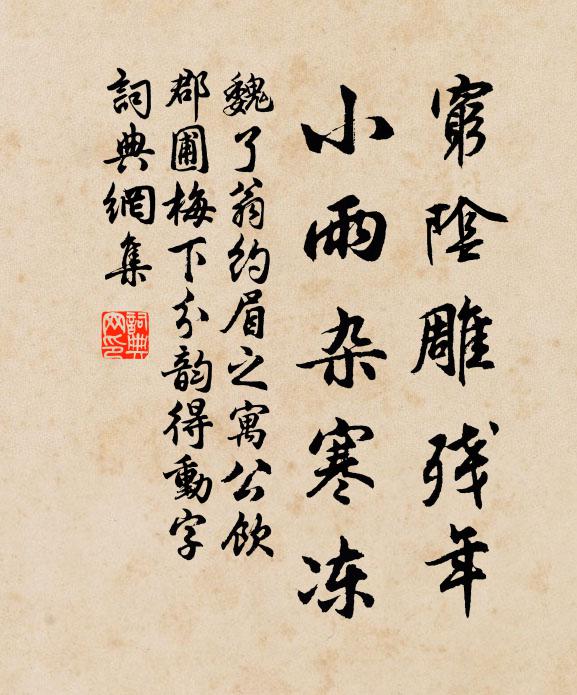 窮陰雕残年
小雨杂寒冻
魏了翁约眉之寓公飲
郡圃梅下分韵得動字
詞典網集
詞典
网印